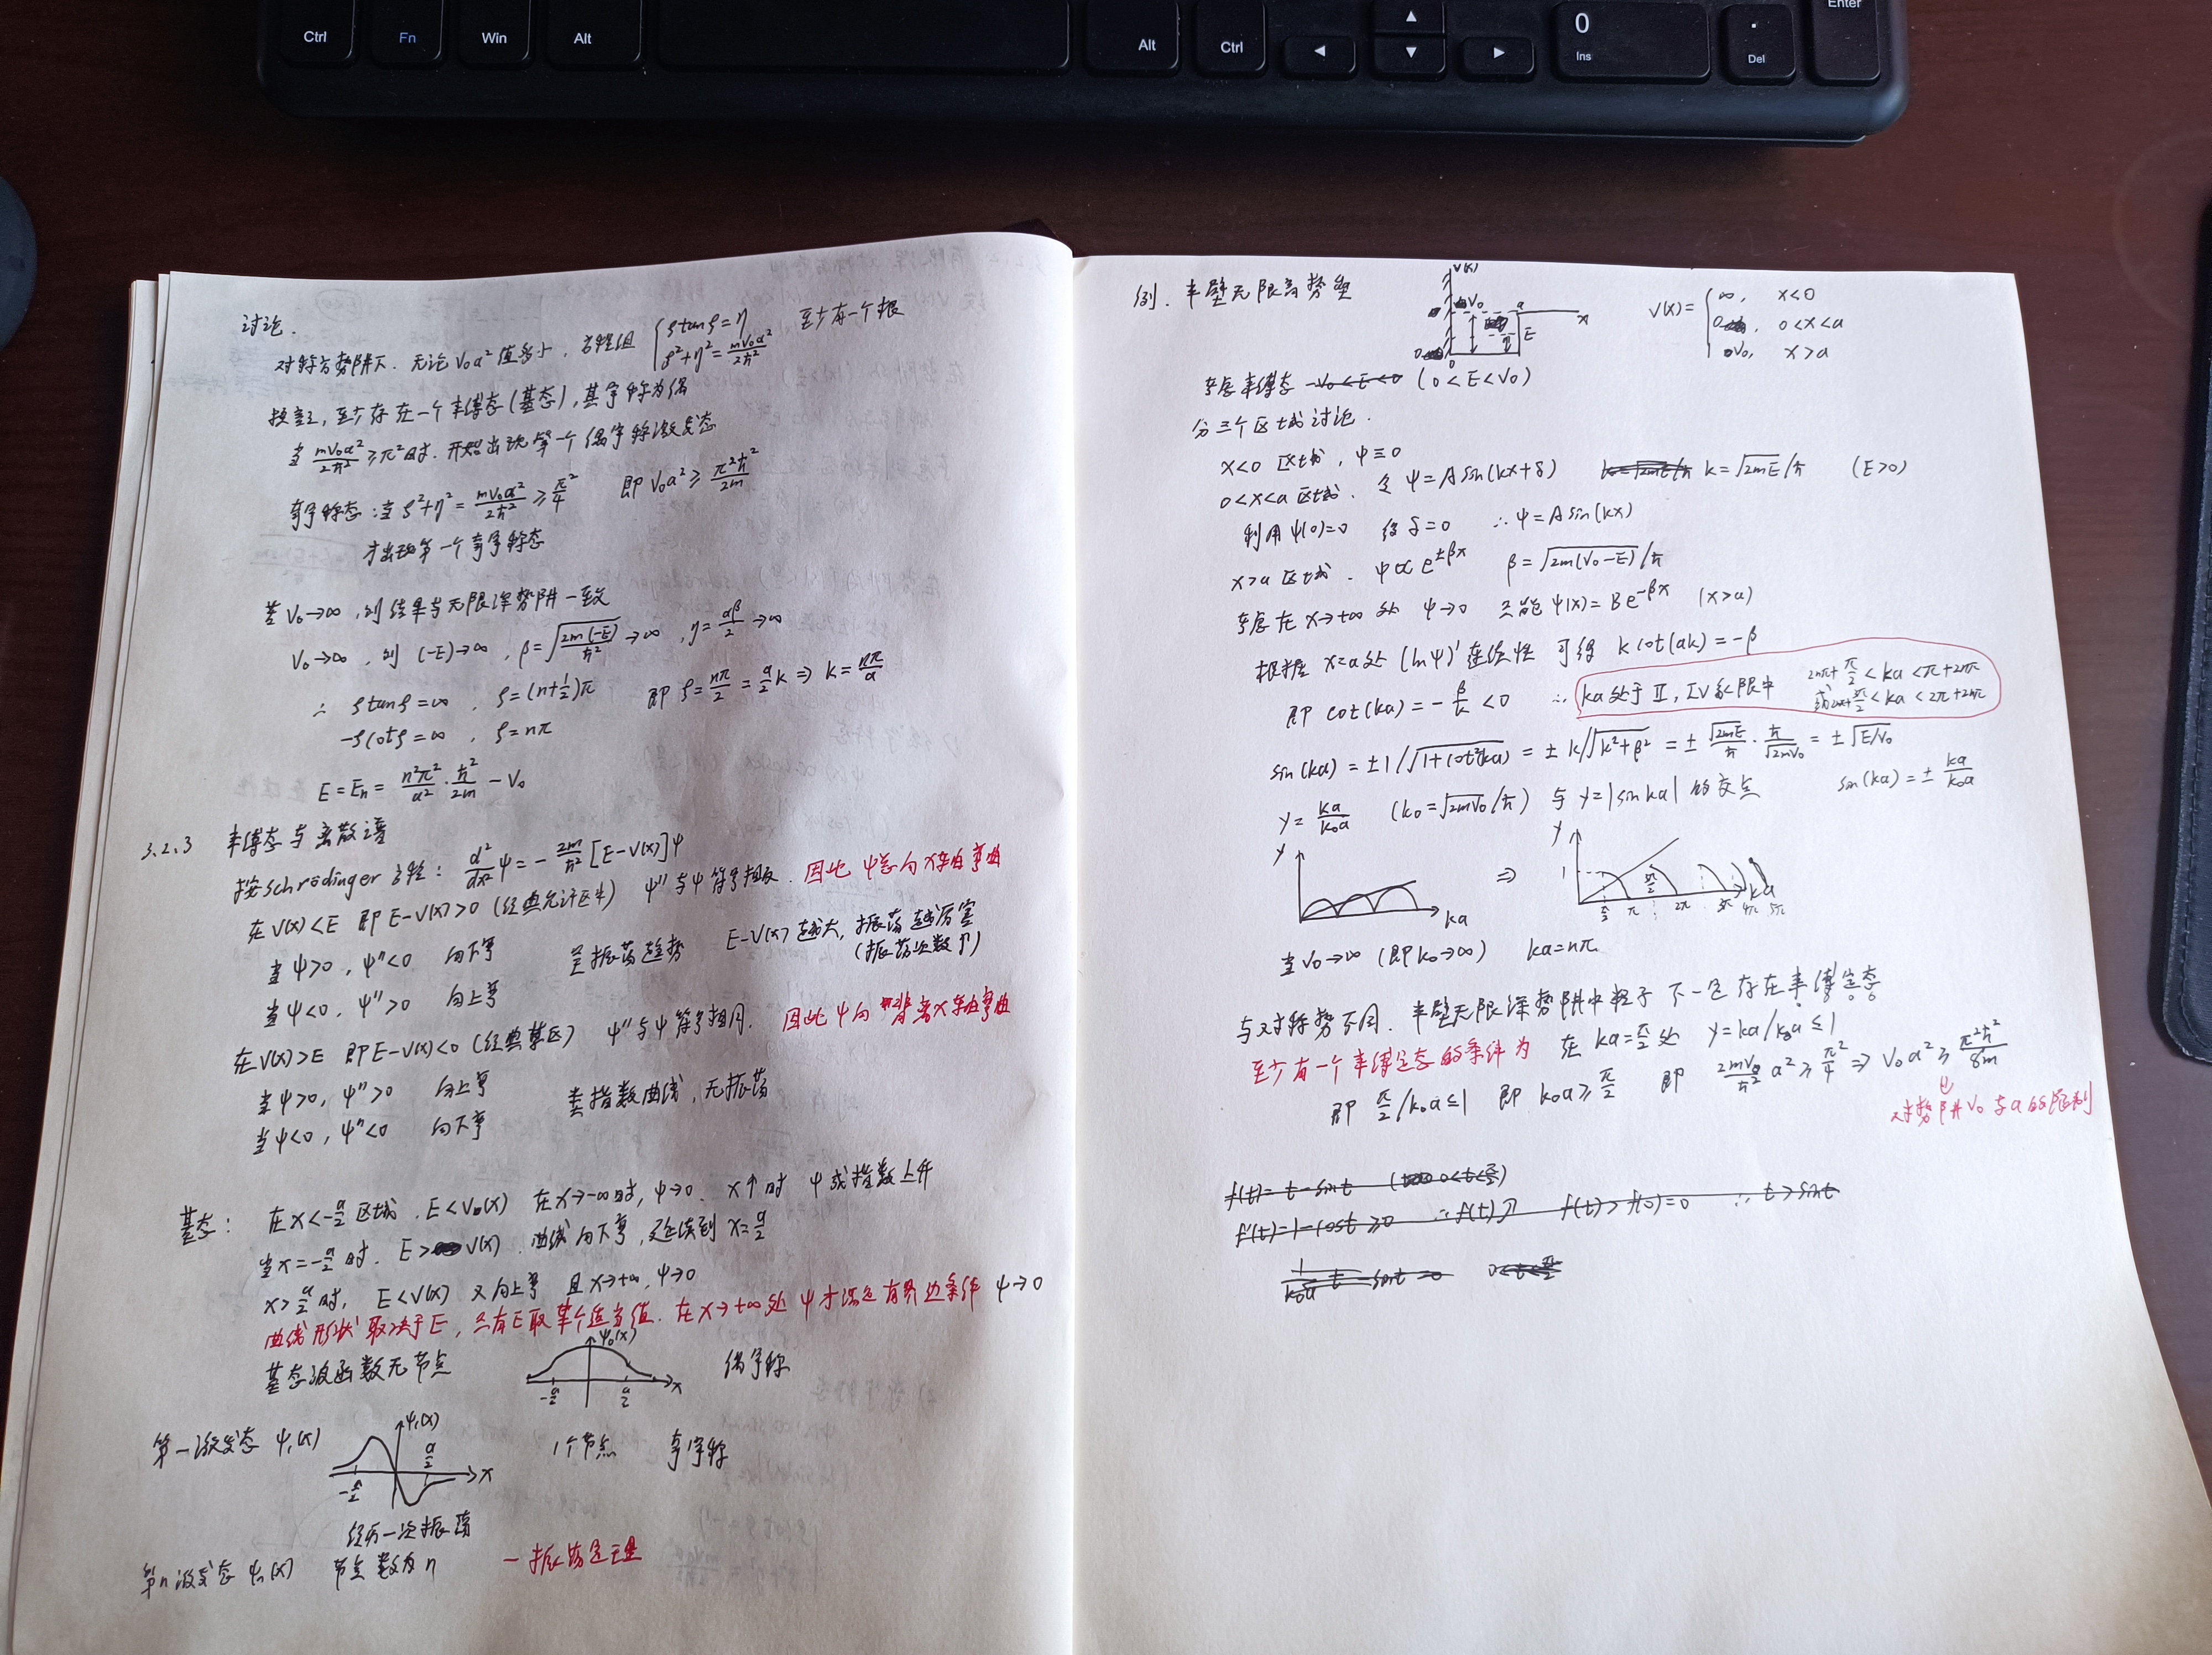 Ctrl Fn Win Alt Alt Ctrl ◄ ▲ ▼ ► 0 Ins . Del Enter
讨论.
对称方势阱下. 无论 V₀a² 值多小, 方程组 { ξtanξ=η 至少有一个根
ξ²+η²=mV₀a²/2ħ²
换言之, 至少存在一个束缚态(基态), 其宇称为偶
当 mV₀a²/2ħ² ≥π² 时. 开始出现第一个偶宇称激发态
奇宇称态: 当 ξ²+η²=mV₀a²/2ħ² ≥ π²/4 即 V₀a² ≥ π²ħ²/2m
才出现第一个奇宇称态
若 V₀→∞, 则结果与无限深势阱一致
V₀→∞, 则 (-E)→∞, β=√(2m(-E)/ħ²) →∞, η=aβ/2→∞
∴ ξtanξ=∞, ξ=(n+1/2)π 即 ξ=nπ/2=a/2 k ⇒ k=nπ/a
-ξcotξ=∞, ξ=nπ
E=Eₙ= n²π²/a² · ħ²/2m - V₀
3.2.3 束缚态与离散谱
按Schrödinger方程: d²/dx² ψ=-2m/ħ² [E-V(x)]ψ
在V(x)<E 即 E-V(x)>0 (经典允许区中) ψ''与ψ符号相反. 因此 ψ总向x轴弯曲
当 ψ>0, ψ''<0 向下弯 呈振荡趋势 E-V(x)越大, 振荡越厉害
当 ψ<0, ψ''>0 向上弯 (振荡次数↑)
在V(x)>E 即E-V(x)<0 (经典禁区) ψ''与ψ符号相同. 因此ψ向背离x轴弯曲
当 ψ>0, ψ''>0 向上弯 类指数曲线, 无振荡
当 ψ<0, ψ''<0 向下弯
基态: 在 x<-a/2 区域. E<V₀(x) 在x→-∞时, ψ→0. x↑时 ψ成指数上升
当x=-a/2时. E>V(x). 曲线向下弯, 延续到x=a/2
x>a/2时, E<V(x) 又向上弯 且x→+∞, ψ→0
曲线形状取决于E, 只有E取某个适当值. 在x→+∞处 ψ才满足有界边条件 ψ→0
基态波函数无节点 ψ₀(x) -a/2 a/2 x 偶宇称
第一激发态 ψ₁(x) ψ₁(x) -a/2 a/2 x 1个节点 奇宇称
经历一次振荡
第n激发态 ψₙ(x) 节点数为n —振荡定理
例. 半壁无限高势垒 V(x) V₀ a x E 0 0 V(x)={ ∞, x<0
0, 0<x<a
V₀, x>a
考虑束缚态 -V₀<E<0 (0<E<V₀)
分三个区域讨论.
x<0 区域, ψ≡0
0<x<a 区域. 令 ψ=Asin(kx+δ) k=√2mE/ħ k=√2mE/ħ (E>0)
利用ψ(0)=0 得 δ=0 ∴ψ=Asin(kx)
x>a 区域. ψ∝e^±βx β=√2m(V₀-E)/ħ
考虑在 x→+∞ 处 ψ→0 只能ψ(x)=Be^-βx (x>a)
根据 x=a处 (lnψ)'连续性 可得 kcot(ak)=-β
即 cot(ka)=-β/k<0 ∴ ka处于Ⅱ, Ⅳ象限中 2nπ+π/2<ka<π+2nπ
或2nπ+3π/2<ka<2π+2nπ
sin(ka)=±1/√1+cot²(ka) =±k/√k²+β² =±√2mE/ħ · ħ/√2mV₀ =±√E/V₀
y=ka/k₀a (k₀=√2mV₀/ħ) 与 y=|sinka| 的交点 sin(ka)=±ka/k₀a
y ka ⇒ y 1 π/2 π 3π/2 2π 3π 4π 5π ka
当V₀→∞ (即k₀→∞) ka=nπ
与对称势不同. 半壁无限深势阱中粒子不一定存在束缚定态
至少有一个束缚定态的条件为 在ka=π/2处 y=ka/k₀a≤1
即 π/2/k₀a≤1 即 k₀a≥π/2 即 2mV₀/ħ² a²≥π²/4 ⇒ V₀a²≥π²ħ²/8m
对势阱V₀与a的限制
f(t)=t-sint (0<t<π/2)
f'(t)=1-cost≥0 ∴f(t)↗ f(t)>f(0)=0 ∴t>sint
1/k₀a t-sint=0 0<t<π/2